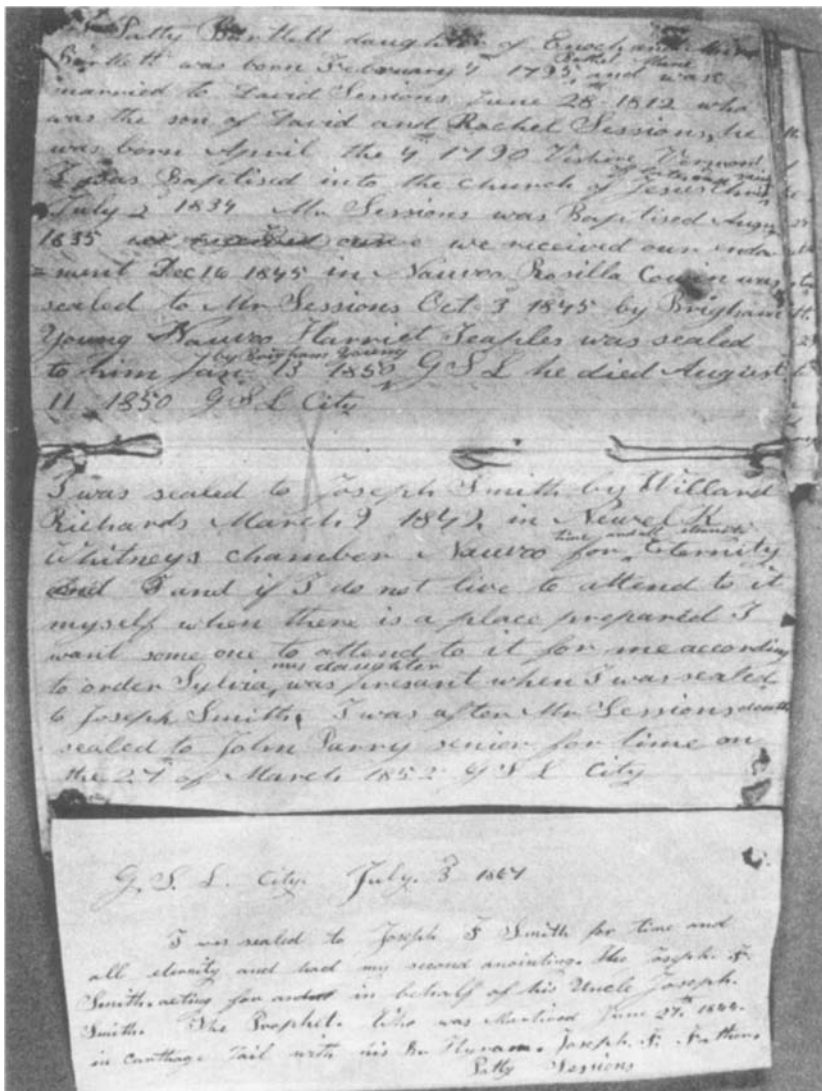 Patty Bartlett daughter of Enoch and Anna
Bethel Maine
Bartlett was born February 4th 1795, and was
married to David Sessions June 28th 1812 who
was the son of David and Rachel Sessions, he
was born April the 4th 1790 Vershire Vermont
of Latterday saints
I was Baptised into the church of Jesus Christ
July 2 1834 Mr Sessions was Baptised Aug
1835 we received our endow
=ment Dec 16 1845 in Nauvoo Rosilla Cowin was
sealed to Mr Sessions Oct 3 1845 by Brigham
Young Nauvoo Harriet Teaples was sealed
by Brigham Young
to him Jan 13 1850 G S L he died August
11 1850 G S L City
I was sealed to Joseph Smith by Willard
Richards March 9 1842 in Newel K
time and all eternity
Whitneys chamber Nauvoo for Eternity
and I and if I do not live to attend to it
myself when there is a place prepared I
want some one to attend to it for me according
my daughter
to order Sylvia was presant when I was sealed
to Joseph Smith. I was after Mr Sessions death
sealed to John Parry senior for time on
the 27th of March 1852 G S L City
G. S. L. City. July. 3d 1867
I was sealed to Joseph F Smith for time and
all eternity and had my second anointing. The Joseph. F.
Smith. acting for and in behalf of his Uncle Joseph.
Smith. The Prophet. Who was Martired June 27th 1844.
in carthage Jail with his Br Hyram. Joseph. F.
Patty Sessions